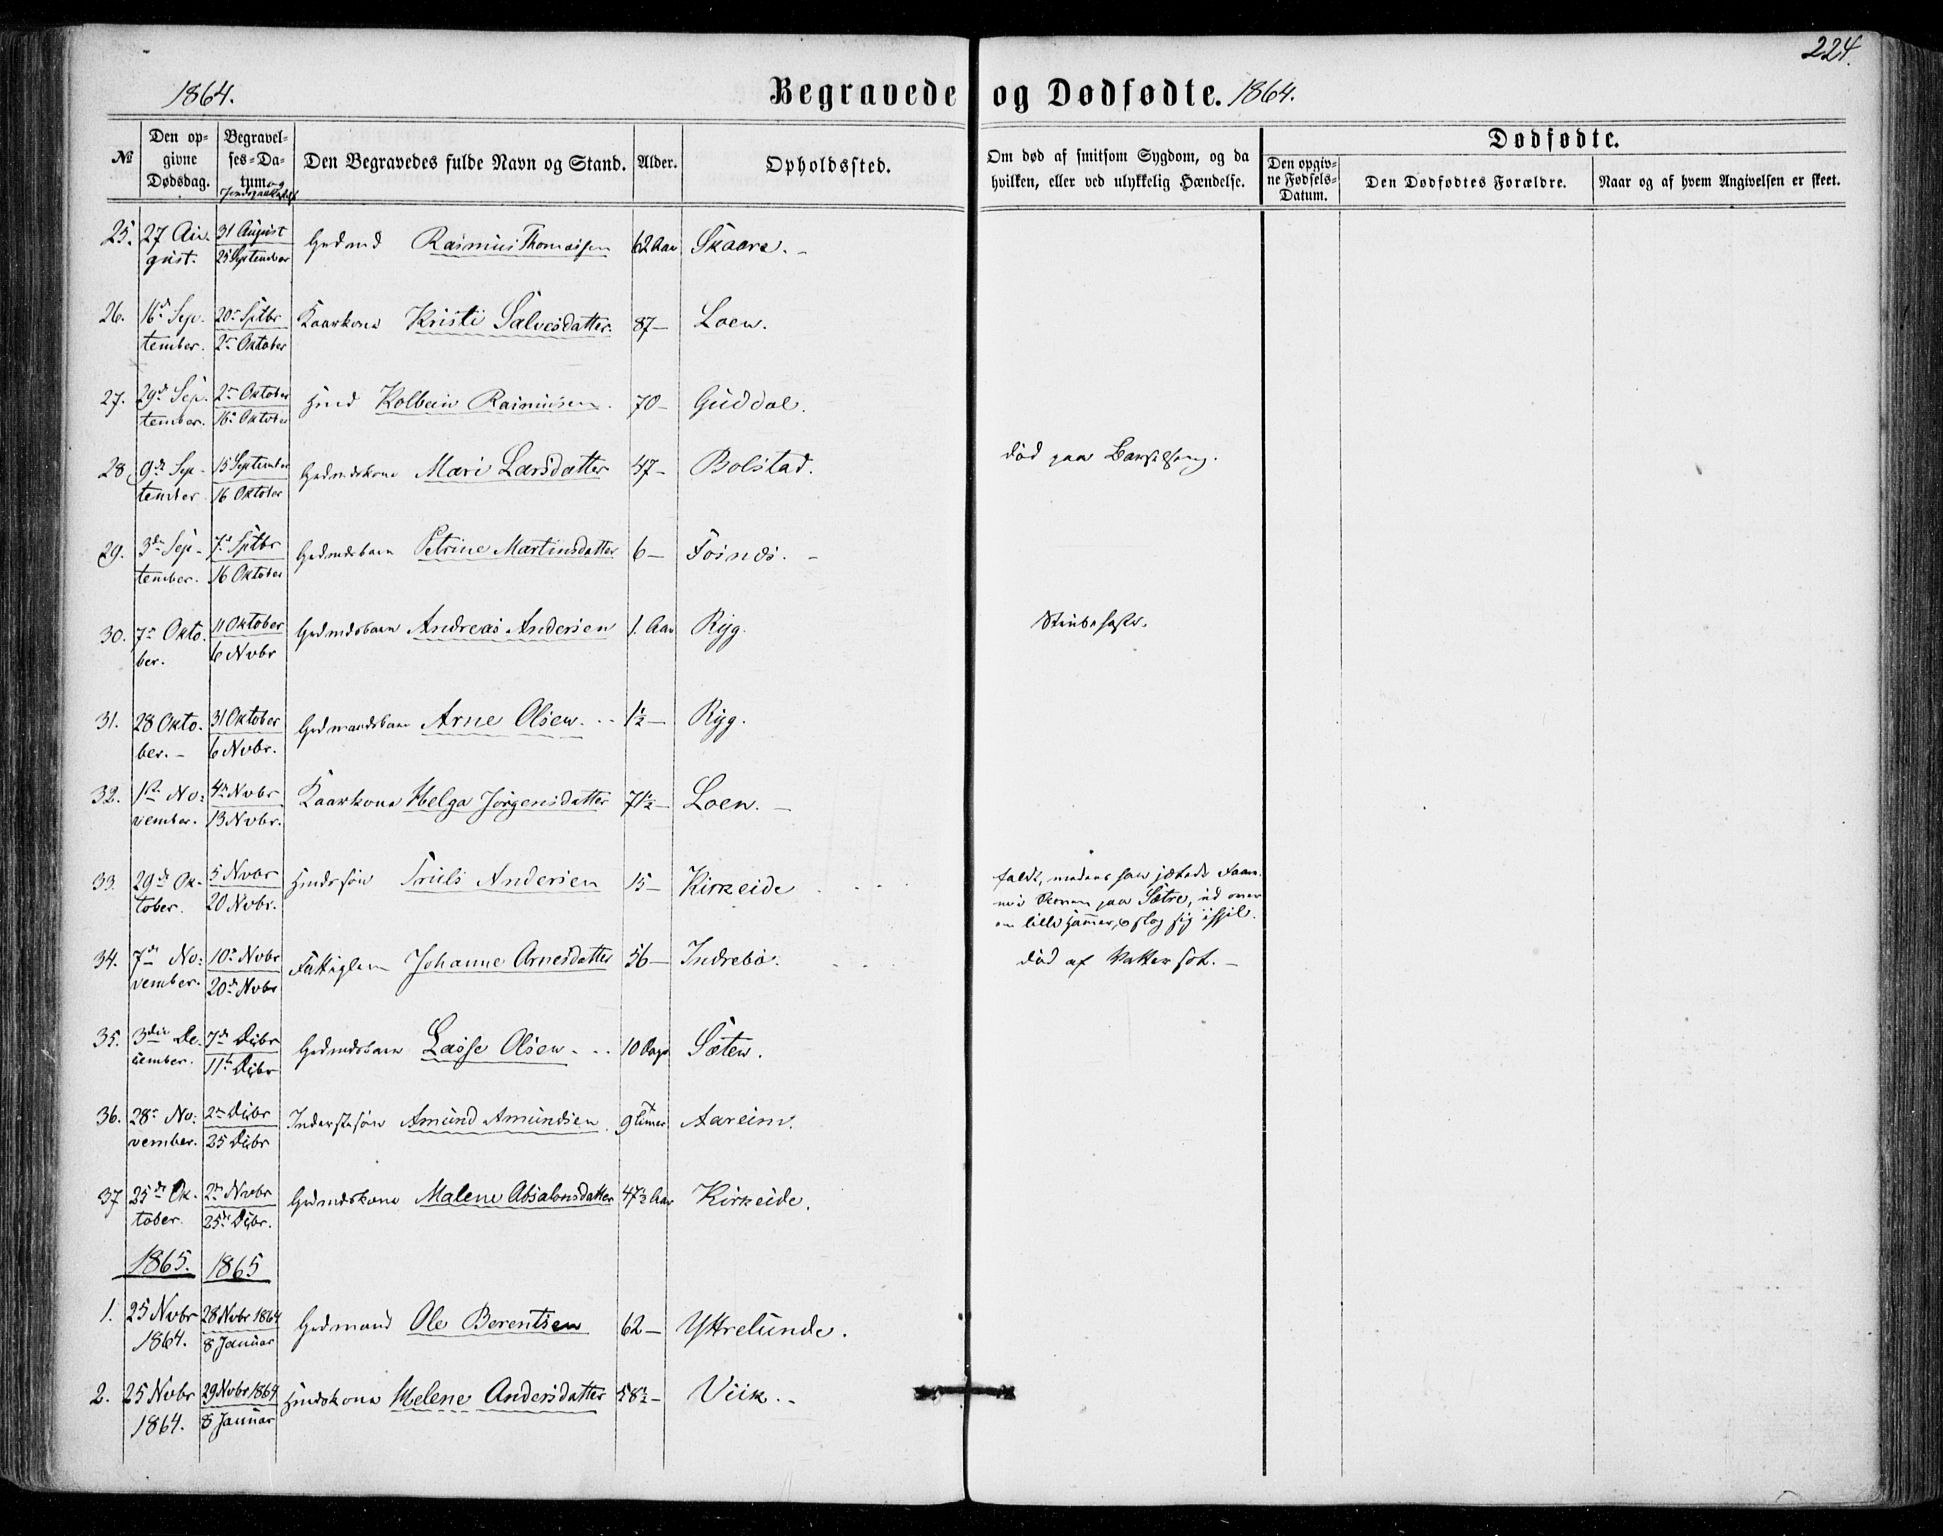 224.
1864. Begravede og Dødfødte. 1864.
№ Den opgivne Dødsdag. Begravelses-Datum og Jordpaakastelse Den Begravedes fulde Navn og Stand. Alder. Opholdssted. Om død af smitsom Sygdom, og da hvilken, eller ved ulykkelig Hændelse. Dødfødte. Den opgivne Fødsels-Datum. Den Dødfødtes Forældre. Naar og af hvem Angivelsen er skeet.
25. 27 August. 31 August 25 September Gdmd Rasmus Thomassen 62 Aar Skaare. -
26. 16de September. 20de Sptbr 2den Oktober Kaarkone Kristi Salvesdatter. 87 - Loen.
27. 29de September. 2den Oktober 16de Oktober Hmd Kolbein Rasmusen. 70 - Guddal.
28 9de September 15 September 16 Oktober Gdmdskone Mari Larsdatter 47 - Bolstad. død paa Barselseng.
29. 3die September. 7de Sptbr 16 Oktober Gdmdsbarn Petrine Martinsdatter 6 - Fosnæs. -
30. 7de Oktober. 11 Oktober 6 Nvbr Gdmdsbarn Andreas Andersen 1. Aar Ryg. Strubehoste.
31. 28 Oktober. - 31 Oktober 6 Nvbr. Gdmandsbarn Arne Olsen. 1½ - Ryg.
32. 1ste November. 4de Nvbr 13 Nvbr. Kaarkone Helga Jørgensdatter 71½ - Loen. -
33. 29de Oktober. 5 Nvbr 20 Nvbr. Hmdssøn Truls Andersen 15 - Kirkeide faldt, medens han jætede Faarene i Skoven paa Sætre, ud over en lille Hammer, & slog sig ihjel.
34. 7de November. 10de Nvbr 20de Nvbr Fattiglem Johanne Arnesdatter 56 - Indrebø. død af Vattersot. -
35. 3die December. 7de Dcbr 11te Dcbr Gdmdsbarn Lasse Olsen. 10 Dage Sæten.
36. 28de November. 2den Dcbr 25 Dcbr Inderstesøn Amund Amundsen. 9 timer Aareim.
37 25de Oktober. 2den Nvbr 25de Dcbr. Gdmdskone Malene Absalonsdatter 47½ Aar Kirkeide.
1865. 1865
1. 25 Nvbr 1864. 28 Nvbr 1864 8 Januar Gdmand Ole Berentsen 62 - Yttrelunde.
2. 25 Nvbr 1864. 29 Nvbr 1864 8 Januar Hmdskone Helene Andersdatter 58½ - Viik. -